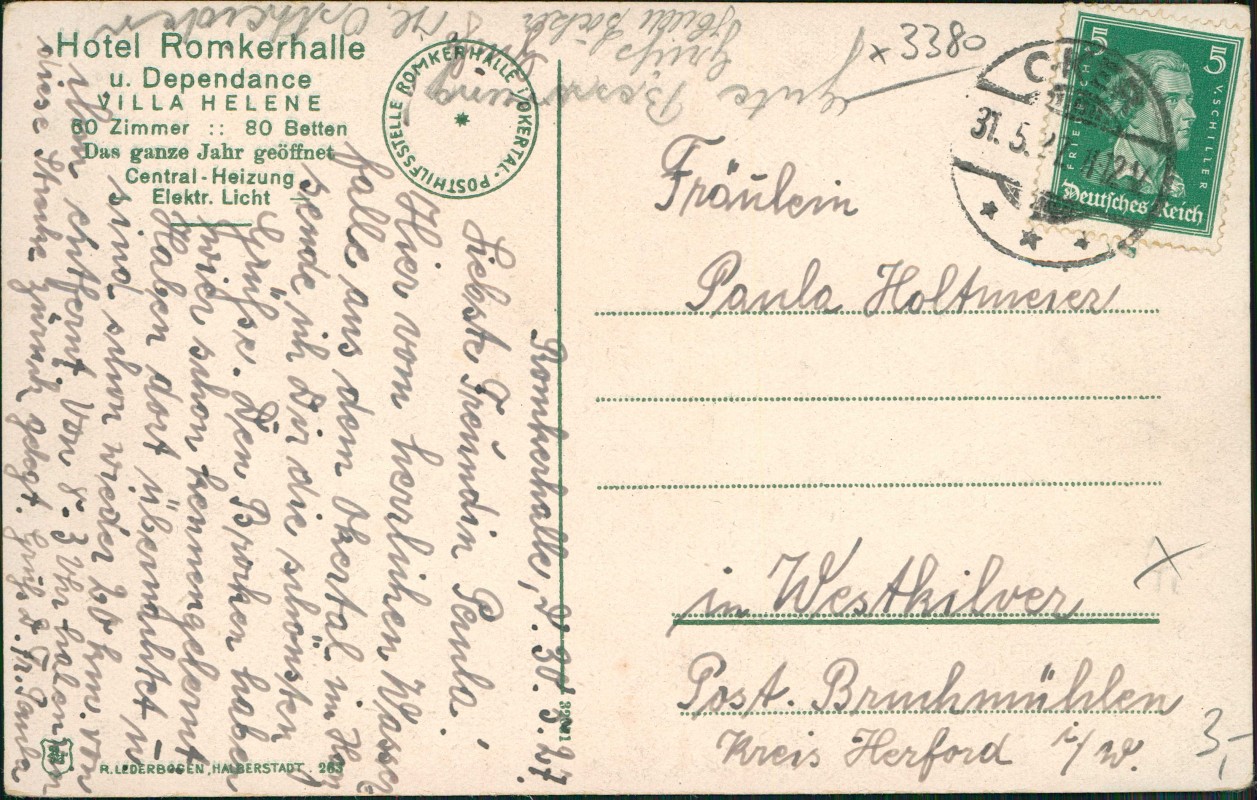 Hotel Romkerhalle
u. Dependance
VILLA HELENE
60 Zimmer :: 80 Betten
Das ganze Jahr geöffnet
Central-Heizung
Elektr. Licht
POSTHILFSSTELLE ROMKERHALLE i/OKERTAL
Romkerhalle, d. 30. 3. 27.
Liebste Freundin Paula!
Hier vom herrlichen Wasser
falle aus dem Okertal im Harz
sende ich Dir die schönsten
Grüsse. Den Brocken haben
wir schon kennengelernt
Haben dort übernachtet u
sind schon wieder 20 km. von
ihm entfernt. Von 8-3 Uhr haben wir
diese Strecke zurück gelegt.
Gruß
Gute Besserung
* 3380
31.5.
FRIEDRICH V. SCHILLER
5 5
Deutsches Reich
Fräulein
Paula Holtmeier
in Westkilver
Post. Bruchmühlen
Kreis Herford i/W.
x
3,-
R. LEDERBOGEN, HALBERSTADT. 263